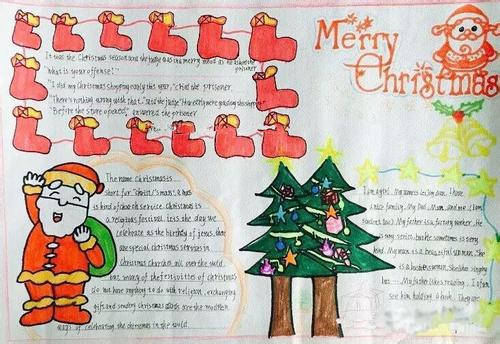 It was the Christmas season and the judge was in a merry mood as he asked the
prisoner
"What is your offense?"
"I did my Christmas shopping early this year," cried the prisoner.
"There's nothing wrong with that," said the judge.
"Before the store opened," answered the prisoner
Merry
Christmas
The name Christmas is
short for "christ's mass". A mass
is kind of church service. Christmas is
a religious festival. It's the day we
celebrate as the birthday of jesus, there
are special christmas services in
Christmas churches all over the world
but many of the festivities of christmas
do not have anything to do with religion, exchanging
gifts and sending christmas cards are the modern
ways of celebrating the christmas in the world.
I am a girl. My name is
nice family. My Dad, Mum and me. I am
student too. My father is a factory worker. He
is very serious, but he sometimes is very
kind. My mum is a beautiful woman. She
is a
My father likes reading. I often
see him holding a book. They are